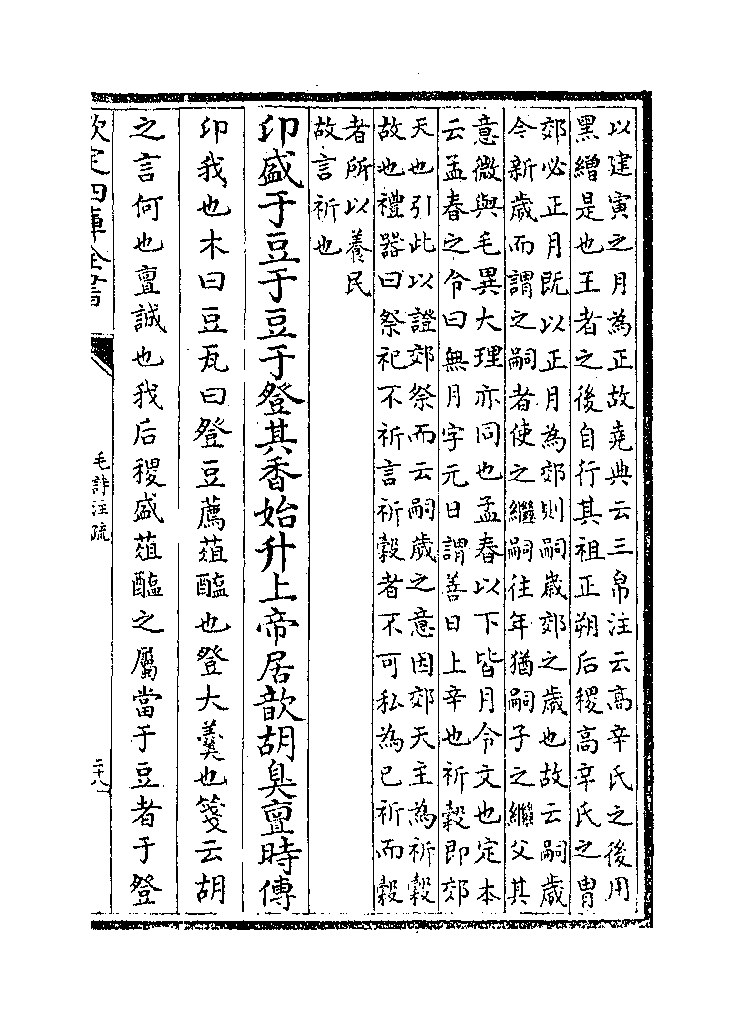 以建寅之月為正故堯典云三帛注云高辛氏之後用
黑繒是也王者之後自行其祖正朔后稷高辛氏之胄
郊必正月既以正月為郊則嗣歲郊之歲也故云嗣歲
今新歲而謂之嗣者使之繼嗣往年猶嗣子之繼父其
意微與毛異大理亦同也孟春以下皆月令文也定本
云孟春之令曰無月字元日謂善日上辛也祈穀即郊
天也引此以證郊祭而云嗣歲之意因郊天主為祈穀
故也禮器曰祭祀不祈言祈穀者不可私為已祈而穀
者所以養民
故言祈也
卬盛于豆于豆于登其香始升上帝居歆胡臭亶時傳
卬我也木曰豆瓦曰登豆薦葅醢也登大羮也箋云胡
之言何也亶誠也我后稷盛葅醢之屬當于豆者于登
欽定四庫全書
毛詩注疏
二十八